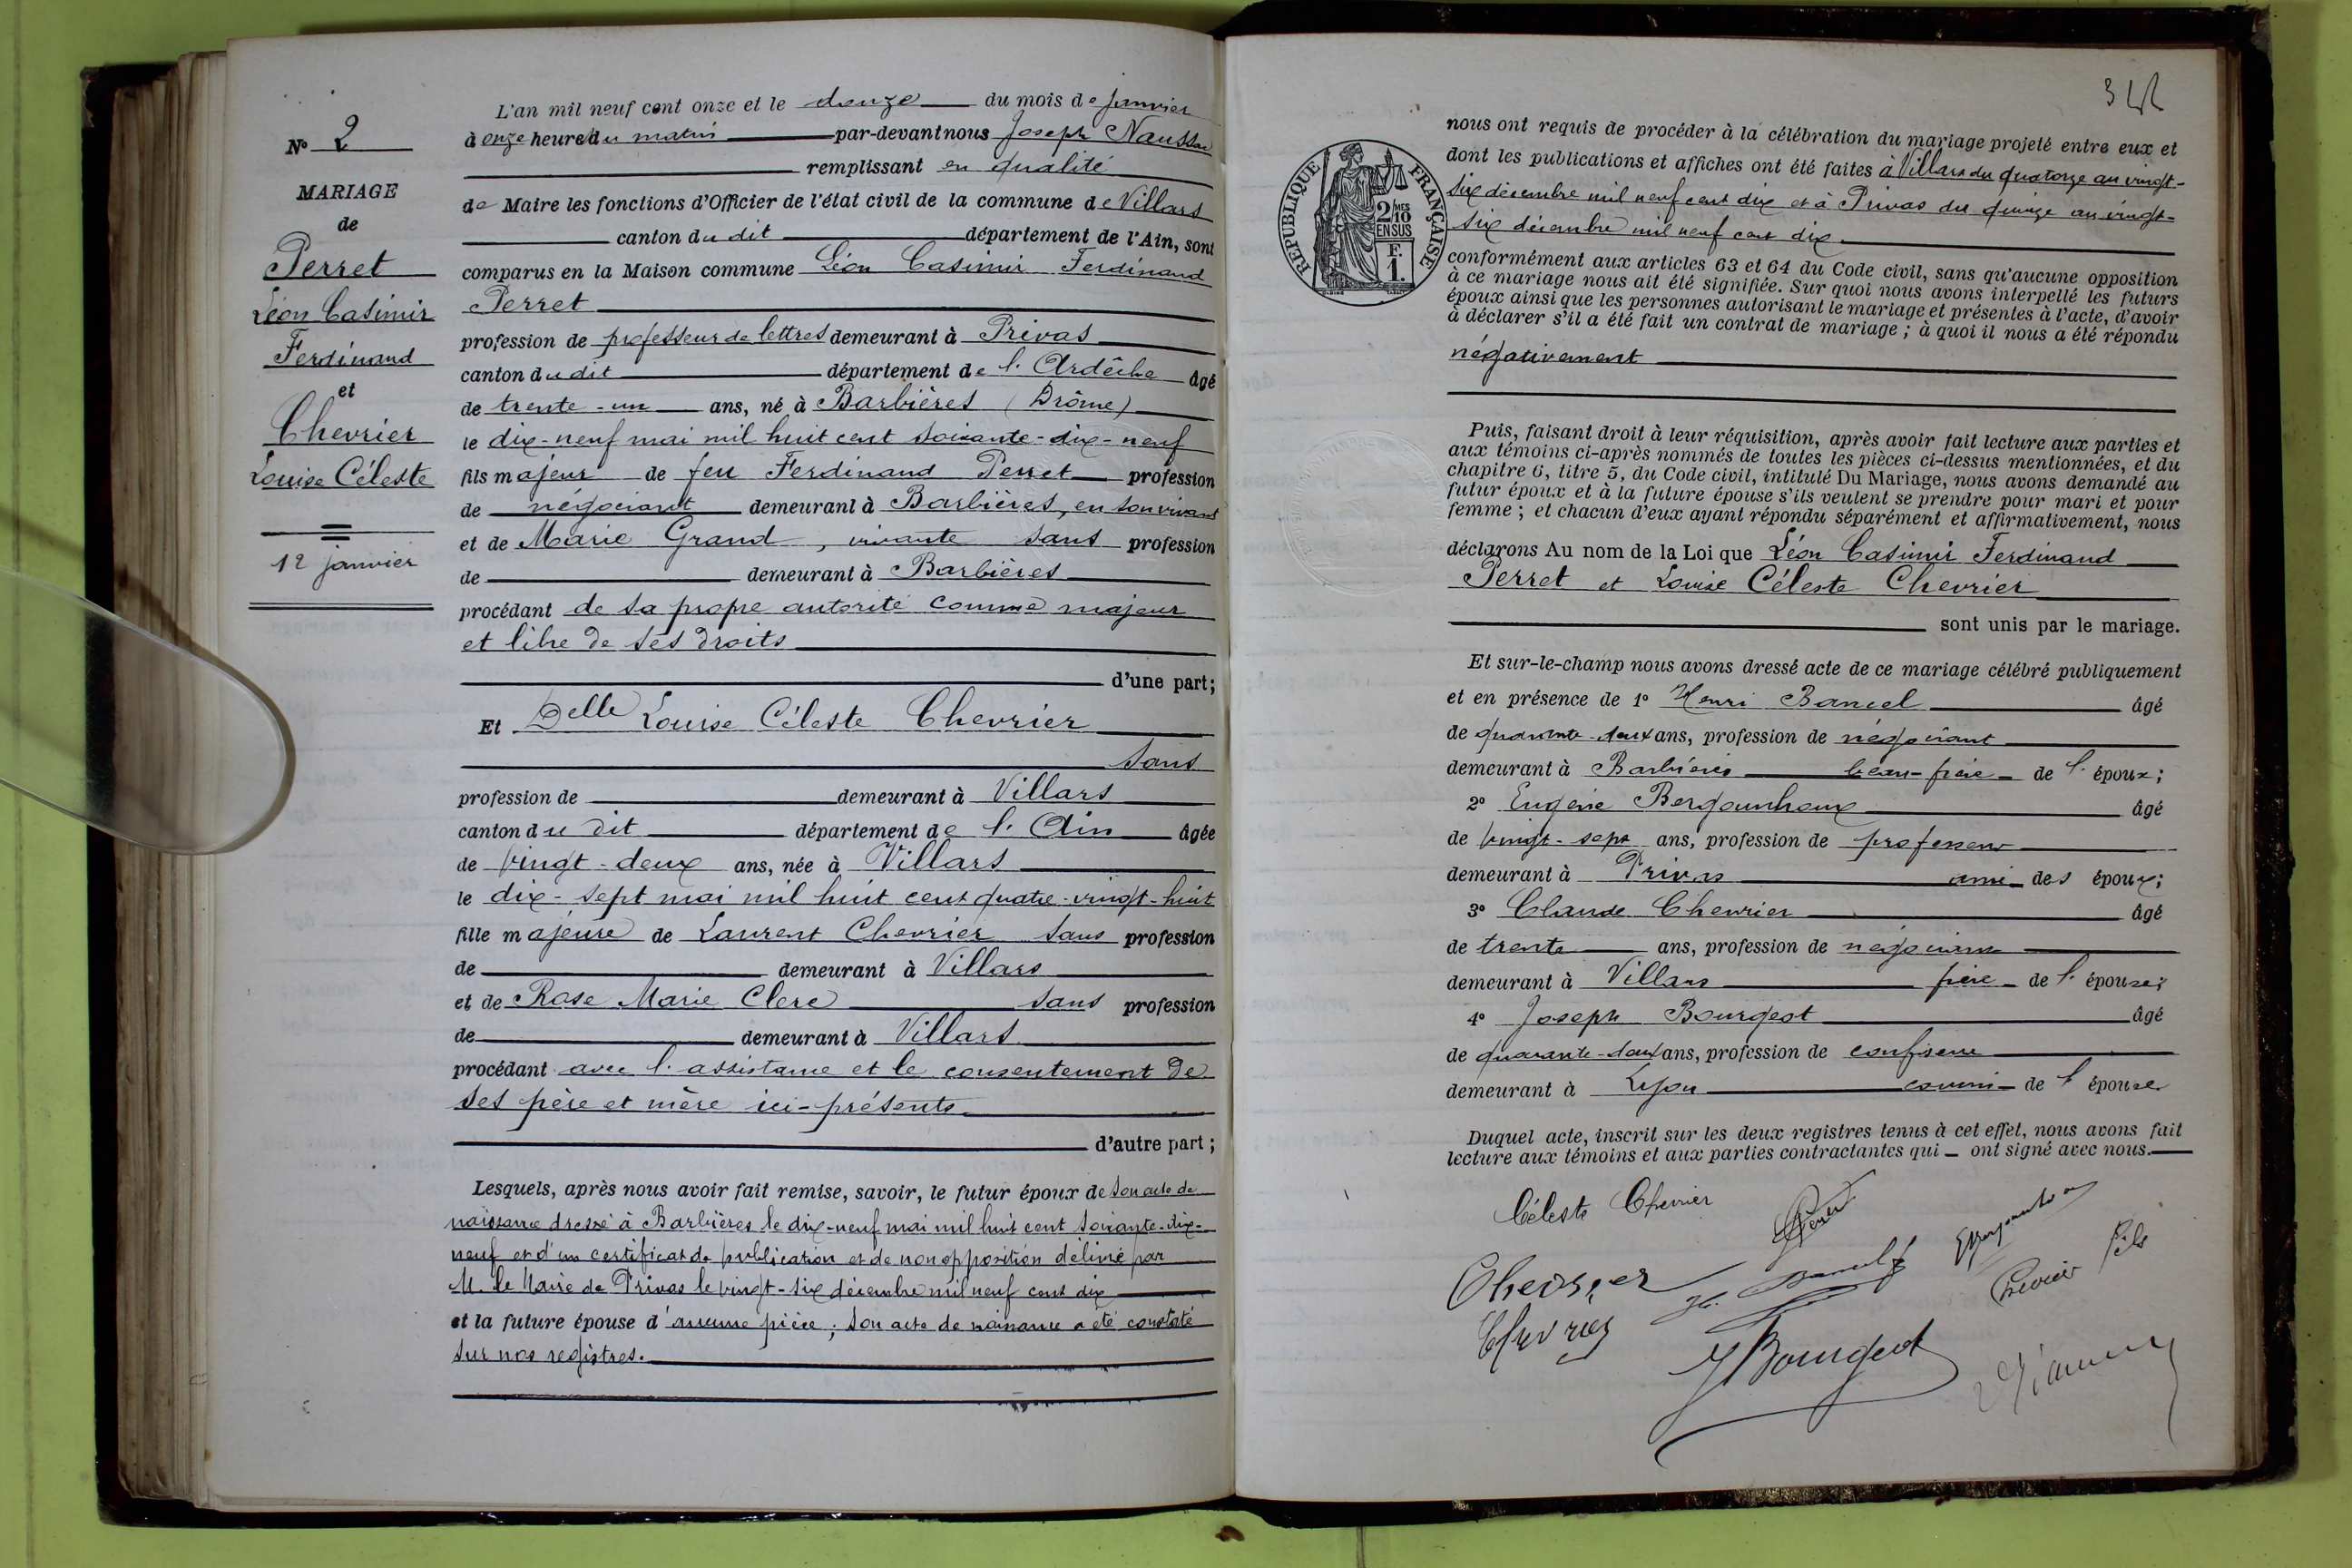 L'an mil neuf cent onze et le douze du mois de janvier
à onze heures du matin par-devant nous Joseph
remplissant en qualité
de Maire les fonctions d'Officier de l'état civil de la commune de Villars
canton dudit département de l'Ain, sont
comparus en la Maison commune Léon Casimir Ferdinand
Perret
profession de professeur de lettres demeurant à Privas
canton dudit département de l'Ardèche âgé
de trente-un ans, né à Barbières (Drôme)
le dix-neuf mai mil huit cent soixante-dix-neuf
fils majeur de feu Ferdinand Perret profession
de négociant demeurant à Barbières, en son vivant
et de Marie Grand, vivante sans profession
de demeurant à Barbières
procédant de sa propre autorité comme majeur
et libre de ses droits
d'une part;
Et Delle Louise Céleste Chevrier
sans
profession de demeurant à Villars
canton dudit département de l'Ain âgée
de vingt-deux ans, née à Villars
le dix-sept mai mil huit cent quatre-vingt-huit
fille majeure de Laurent Chevrier sans profession
de demeurant à Villars
et de Rose Marie Clerc sans profession
de demeurant à Villars
procédant avec l'assistance et le consentement de
ses père et mère ici-présents
d'autre part;
Lesquels, après nous avoir fait remise, savoir, le futur époux de son acte de
naissance dressé à Barbières le dix-neuf mai mil huit cent soixante-dix-
neuf et d'un certificat de publication et de non opposition délivré par
M. le Maire de Privas le vingt-six décembre mil neuf cent dix
et la future épouse d'aucune pièce; son acte de naissance a été constaté
sur nos registres.
No 2
MARIAGE
de
Perret
Léon Casimir
Ferdinand
et
Chevrier
Louise Céleste
12 janvier
nous ont requis de procéder à la célébration du mariage projeté entre eux et
dont les publications et affiches ont été faites à Villars du quatorze au vingt-
six décembre mil neuf cent dix et à Privas du quinze au vingt-
six décembre mil neuf cent dix
RÉPUBLIQUE FRANÇAISE
2/10 MES
EN SUS
F.
1.
conformément aux articles 63 et 64 du Code civil, sans qu'aucune opposition
à ce mariage nous ait été signifiée. Sur quoi nous avons interpellé les futurs
époux ainsi que les personnes autorisant le mariage et présentes à l'acte, d'avoir
à déclarer s'il a été fait un contrat de mariage; à quoi il nous a été répondu
négativement
Puis, faisant droit à leur réquisition, après avoir fait lecture aux parties et
aux témoins ci-après nommés de toutes les pièces ci-dessus mentionnées, et du
chapitre 6, titre 5, du Code civil, intitulé Du Mariage, nous avons demandé au
futur époux et à la future épouse s'ils veulent se prendre pour mari et pour
femme; et chacun d'eux ayant répondu séparément et affirmativement, nous
déclarons Au nom de la Loi que Léon Casimir Ferdinand
Perret et Louise Céleste Chevrier
sont unis par le mariage.
Et sur-le-champ nous avons dressé acte de ce mariage célébré publiquement
et en présence de 1° Henri Bancel âgé
de quarante-deux ans, profession de négociant
demeurant à Barbières beau-frère de l'époux;
2° Eugène âgé
de vingt-sept ans, profession de professeur
demeurant à Privas ami des époux;
3° Claude Chevrier âgé
de trente ans, profession de négociant
demeurant à Villars frère de l'épouse;
4° Joseph Bourgeot âgé
de quarante-deux ans, profession de confiseur
demeurant à Lyon cousin de l'épouse
Duquel acte, inscrit sur les deux registres tenus à cet effet, nous avons fait
lecture aux témoins et aux parties contractantes qui ont signé avec nous.
Céleste Chevrier
Perret
Chevrier
H. Bancel
Chevrier fils
Chevrier
J Bourgeot